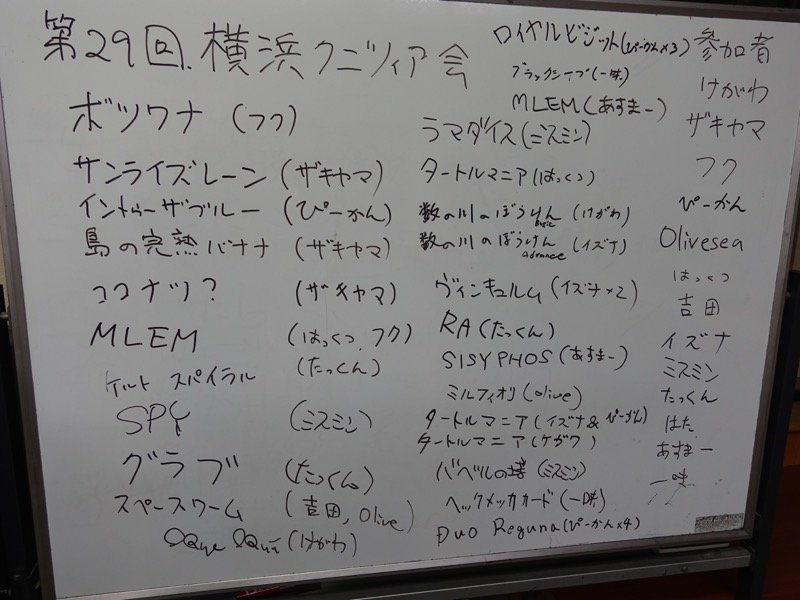 第29回.横浜クニツィア会
ボツワナ (フク)
サンライズレーン (ザキヤマ)
イントゥーザブルー (ぴーかん)
島の完熟バナナ (ザキヤマ)
ココナッツ? (ザキヤマ)
MLEM (はっくつ, フク)
ケルト スパイラル (たっくん)
SPY (ミスミン)
グラブ (たっくん)
スペースワーム (吉田, Olive)
(けがわ)
ロイヤルビジット(ぴーかん×3)
ブラックシープ(一味)
MLEM(あすまー)
ラマダイス(ミスミン)
タートルマニア(はっくつ)
数の川のぼうけん basic (けがわ)
数の川のぼうけん advance (イズナ)
ヴィンキュルム(イズナ×2)
RA(たっくん)
SISYPHOS(あすまー)
ミルフィオリ(olive)
タートルマニア(イズナ&ぴーかん)
タートルマニア(ケガワ)
バベルの塔(ミスミン)
ヘックメッカカード(一味)
Duo Reguna(ぴーかん×4)
参加者
けがわ
ザキヤマ
フク
ぴーかん
Olivesea
はっくつ
吉田
イズナ
ミスミン
たっくん
はた
あすまー
一味